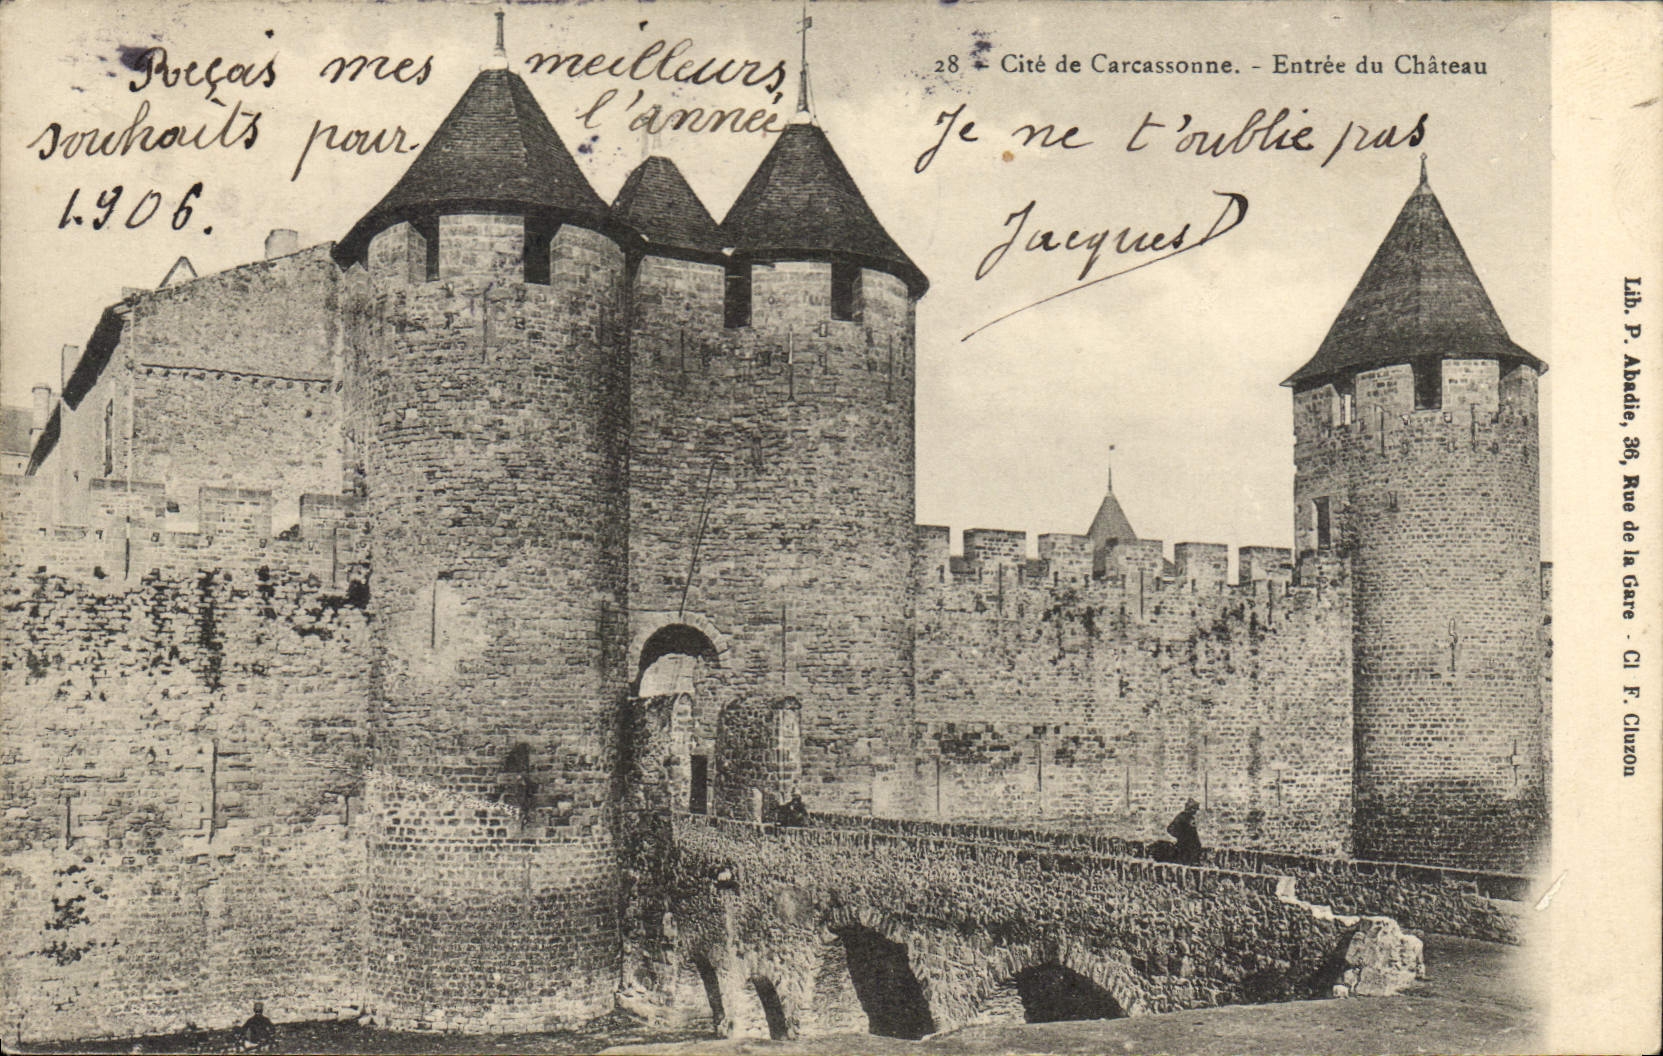 28 - Cité de Carcassonne. - Entrée du Château
Reçois mes meilleurs
souhaits pour l'année
1906.
Je ne t'oublie pas
Jacques D
Lib. P. Abadie, 36, Rue de la Gare - Cl F. Cluzon